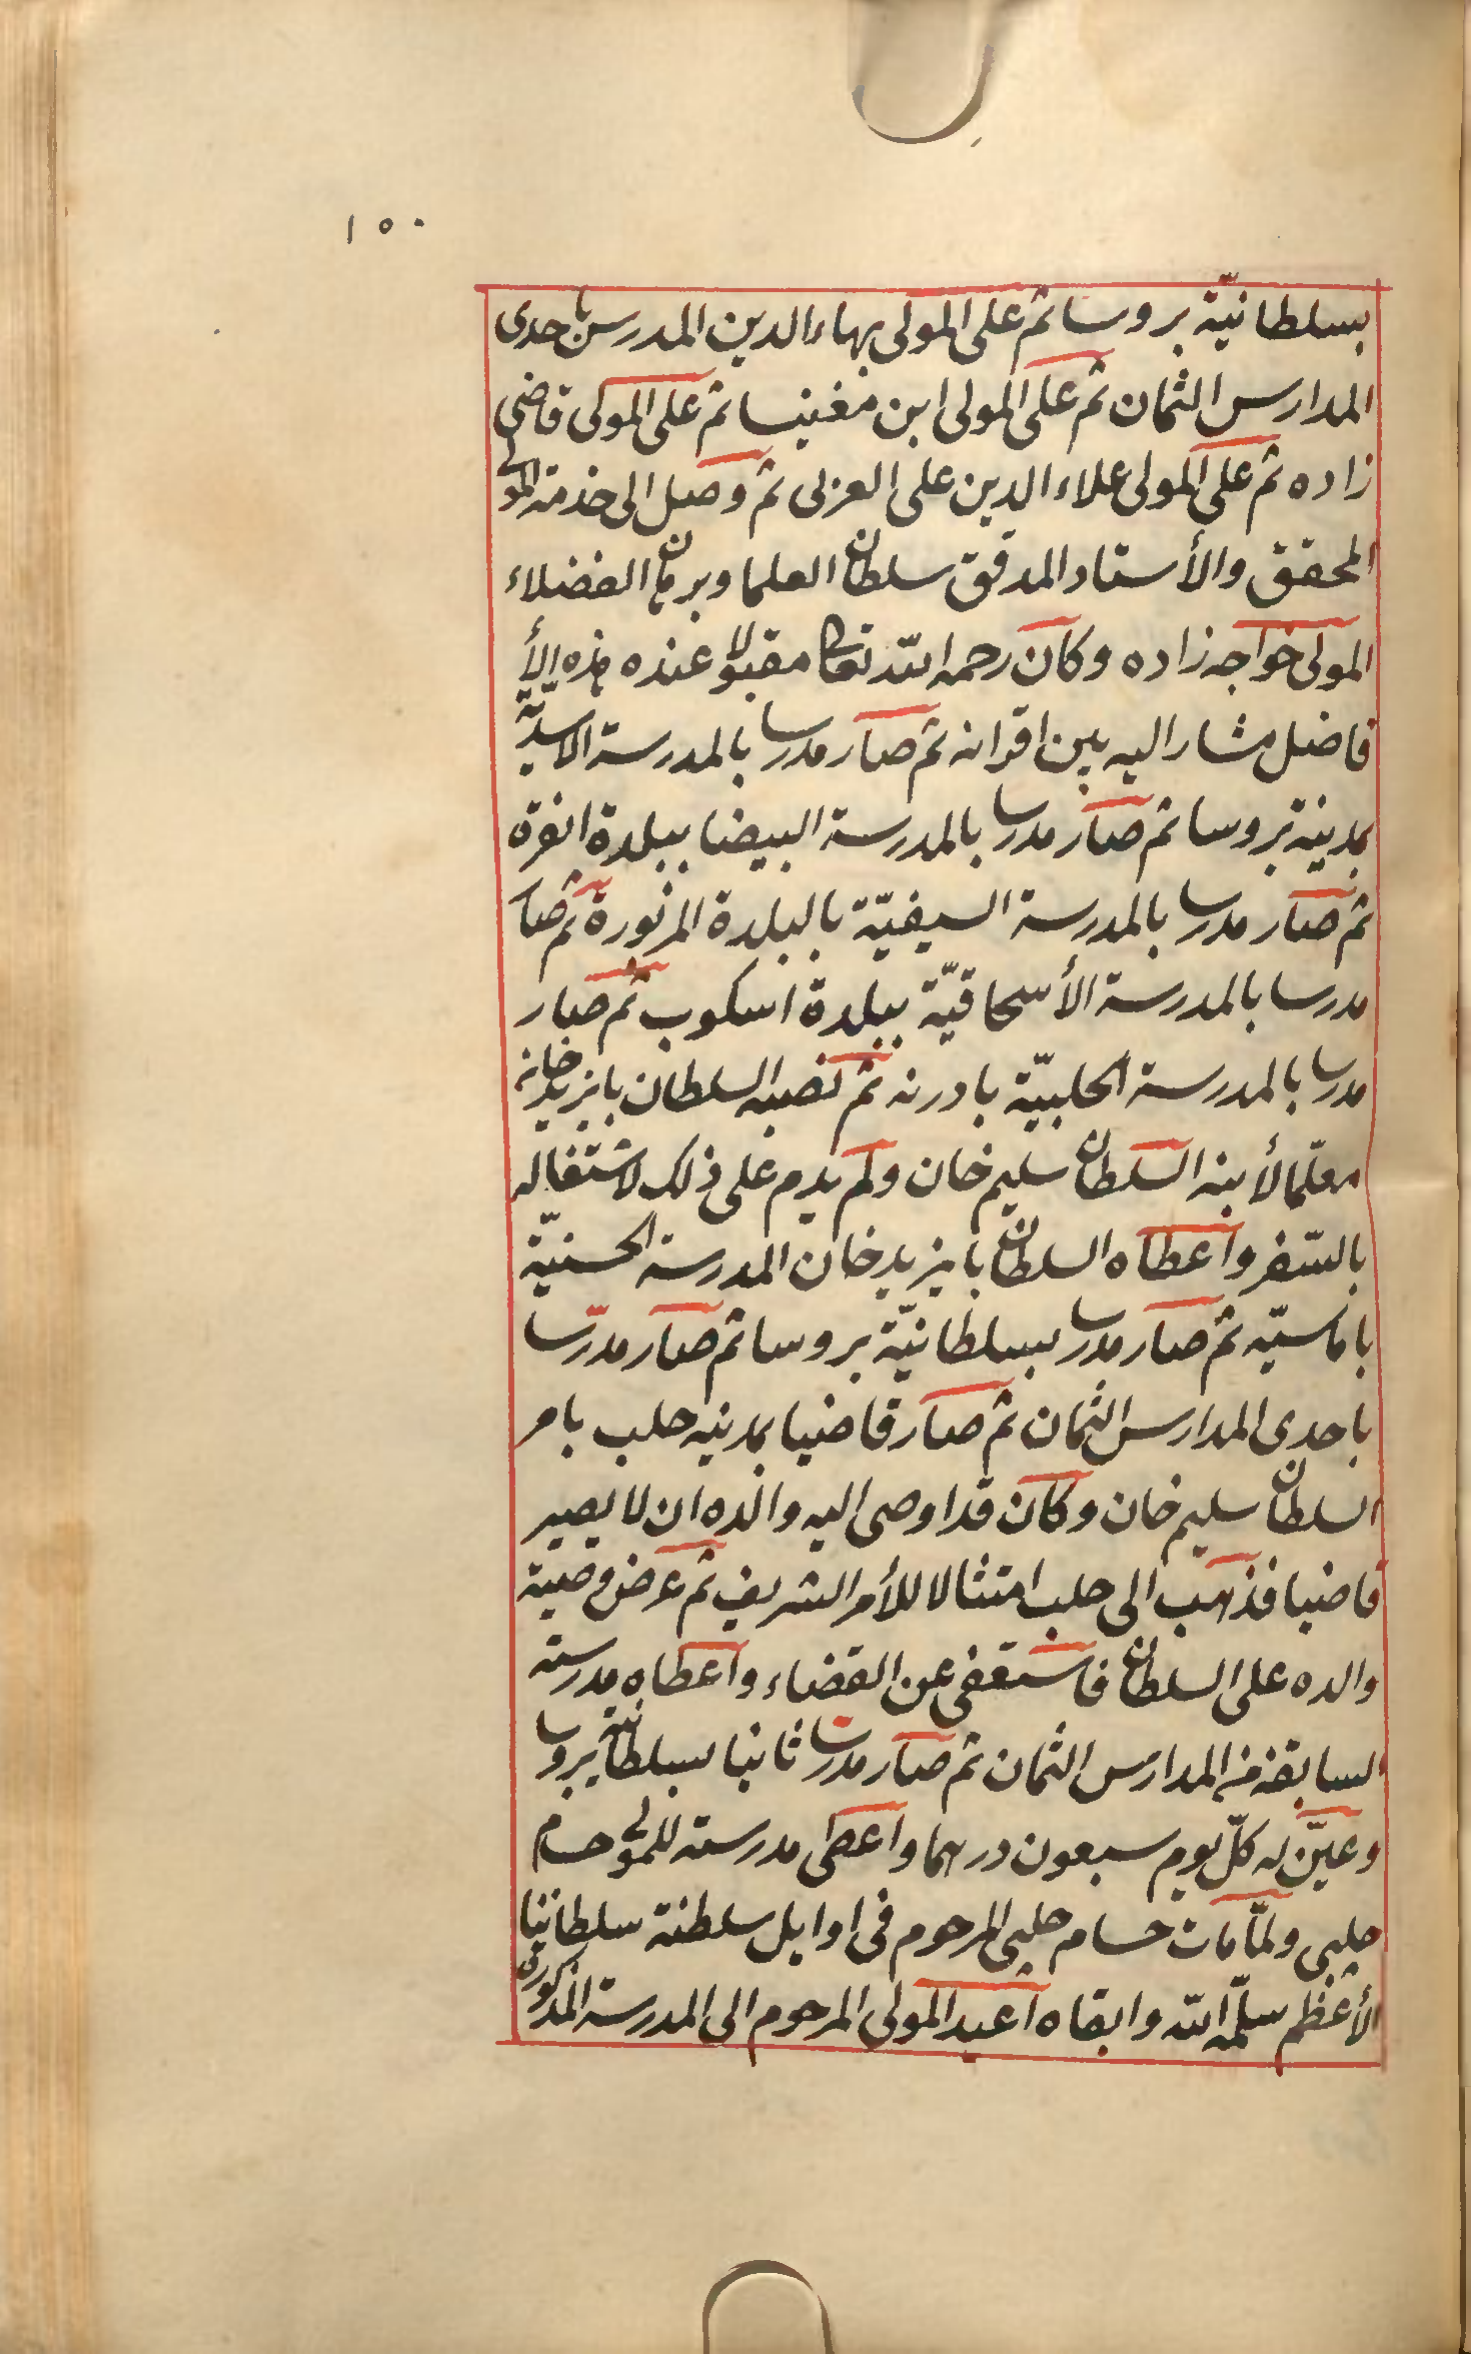 ١٥٠
بسلطانيّة بروسا ثم على المولى بهاء الدين المدرس باحدى
المدارس الثمان ثم على المولى ابن مغنيسا ثم على المولى قاضي
زاده ثم على المولى علاء الدين على العربى ثم وصل الى خدمة المولى
المحقق والأستاد المدقق سلطان العلما وبرهان الفضلاء
المولى خواجه زاده وكان رحمه الله تعالى مقبولا عنده هذه الأ
فاضل مشار اليه بين اقرانه ثم صار مدرسا بالمدرسة الاسديّة
بمدينة بروسا ثم صار مدرسا بالمدرسة البيضا ببلدة انقرة
ثم صار مدرسا بالمدرسة السيفيّة بالبلدة المزبورة ثم صار
مدرسا بالمدرسة الأسحاقيّة ببلدة اسكوب ثم صار
مدرسا بالمدرسة الحلبيّة بادرنه ثم نصبه السلطان بايزيد خان
معلّما لأبنه السلطان سليم خان ولم يدم على ذلك لاشتغاله
بالسّفر واعطاه السلطان بايزيد خان المدرسة الحسنيّة
باماسيّه ثم صار مدرسا بسلطانيّة بروسا ثم صار مدرّسا
باحدى المدارس الثمان ثم صار قاضيا بمدينه حلب بامر
السلطان سليم خان وكان قد اوصى اليه والده ان لا يصير
قاضيا فذهب الى حلب امتثالا للأمر الشريف ثم عرض وصية
والده على السلطان فاستعفى عن القضاء واعطاه مدرسته
السابقة من المدارس الثمان ثم صار مدرسا ثانيا بسلطانية بروسا
وعيّن له كلّ يوم سبعون درهما واعطى مدرسته للمولى حسام
چلبى ولمّا مات حسام چلبى المرحوم فى اوايل سلطنة سلطاننا
الأعظم سلّمه الله وابقاه اعيد المولى المرحوم الى المدرسة المذكورة